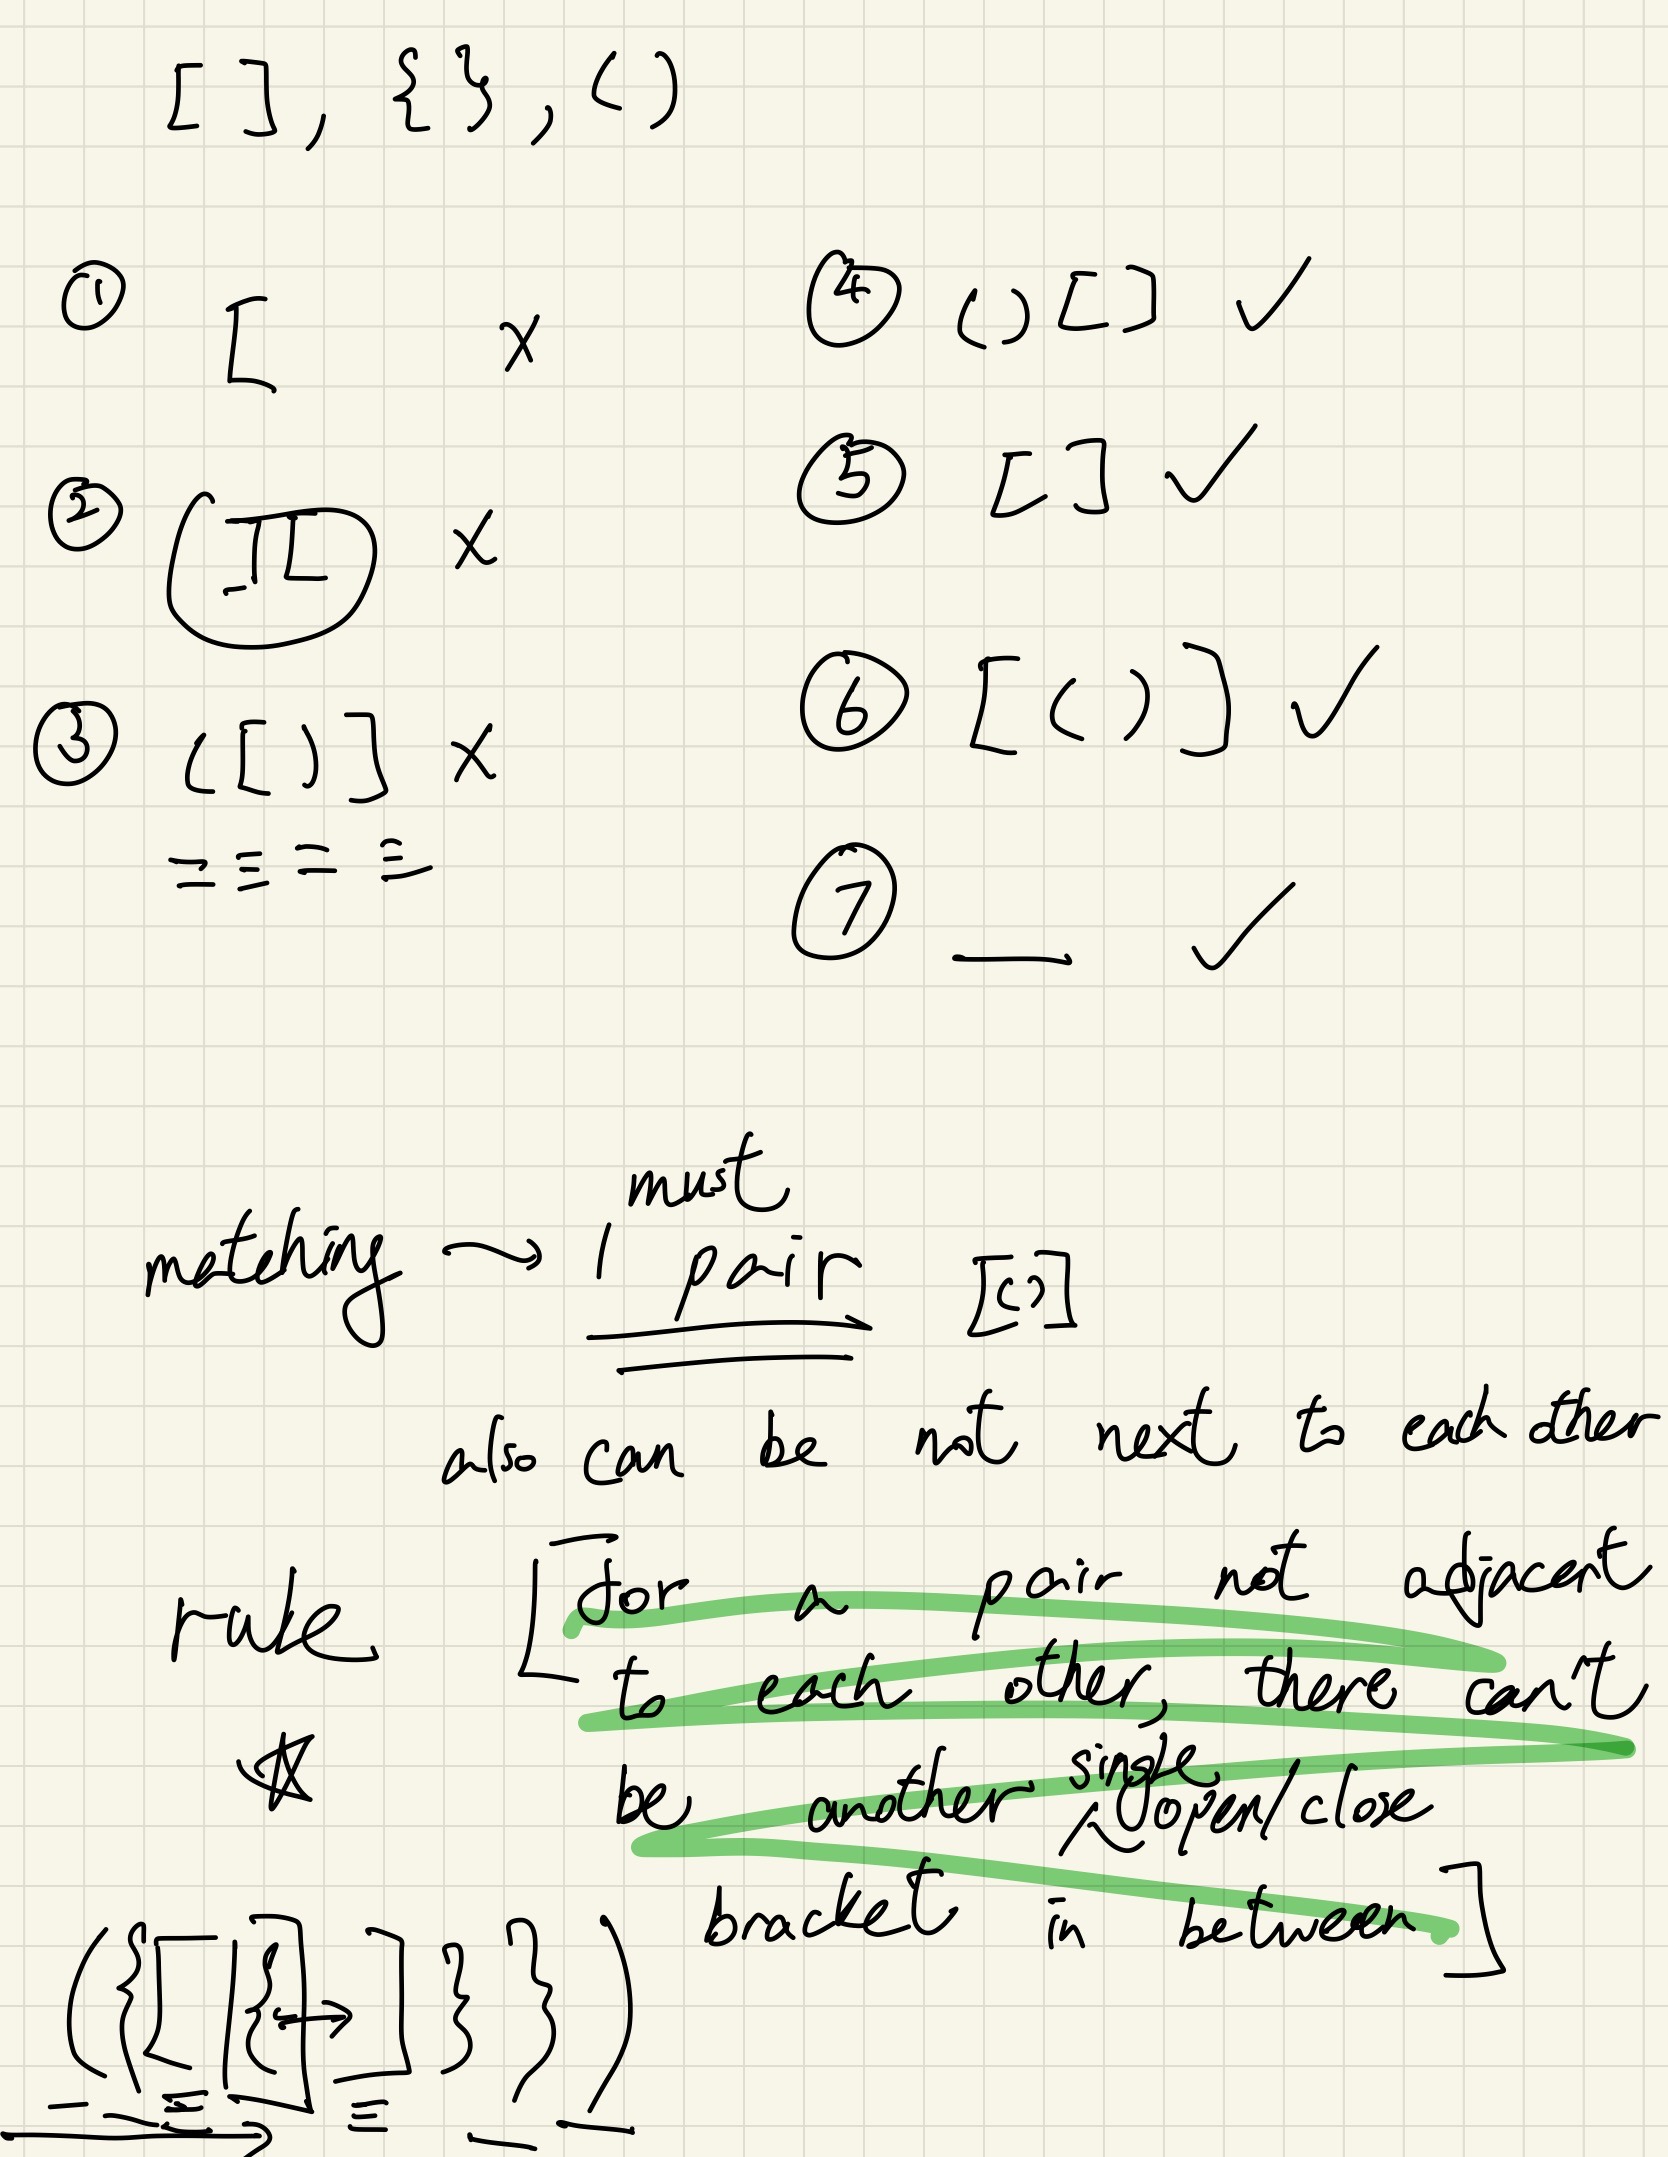 [ ], { }, ( )
① [ x
② ][ x
③ ( [ ) ] x
④ ( ) [ ] ✓
⑤ [ ] ✓
⑥ [ ( ) ] ✓
⑦ __ ✓
must
matching → 1 pair [()]
also can be not next to each other
rule [for a pair not adjacent
to each other, there can't
be another single open/close
bracket in between]
( { [ { ] } } )